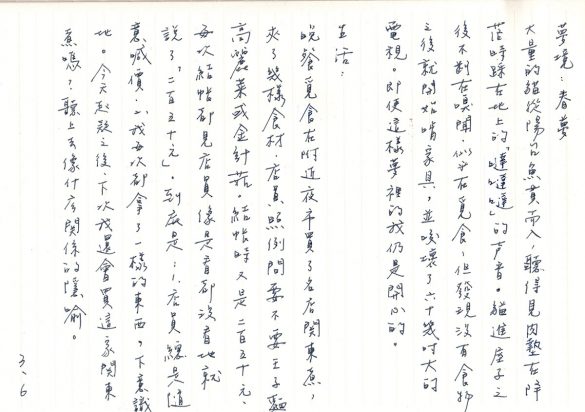 夢境：春夢
大量的貓從陽台魚貫而入，聽得見肉墊在
踩在地上的「噠噠噠」的声音。貓進屋子之
後不斷在嗅聞，似乎在覓食，但發現沒有食物
之後就開始啃家具，並咬壞了六十幾吋大的
電視。即使這樣夢裡的我仍是開心的。
生活：
晚餐覓食在附近夜市買了名店関東煮，
夾了幾樣食材，店員照例問要不要王子麵
高麗菜或金針菇。結帳時又是二百五十元、
每次結帳都見店員像是看都沒看地就
說了，「二百五十元」。到底是：1.店員總是隨
意喊價；2.我每次都拿了一樣的東西，下意識
地。今天起疑之後，下次我還會買這家関東
煮嗎？聽上去像什麼関係的隱喻。
3.6